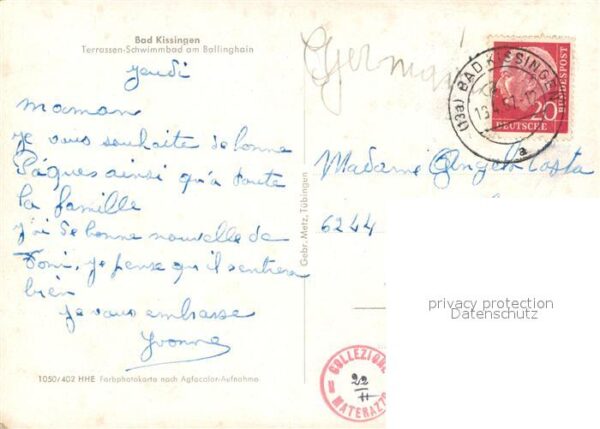 Bad Kissingen
Terrassen-Schwimmbad am Ballinghain
jeudi
maman
je vous souhaite de bonne
Pâques ainsi qu'à toute
la famille
j'ai de bonne nouvelle de
Toni, je pense qu'il s'entirera
bien
je vous embrasse
Yvonne
1050/402 HHE Farbphotokarte nach Agfacolor-Aufnahme
Gebr. Metz, Tübingen
German
(13a) BAD KISSINGEN
a
20
DEUTSCHE
BUNDESPOST
Madame Angelo Costa
6244
privacy protection
Datenschutz
COLLEZIONE
22
MATERAZZO